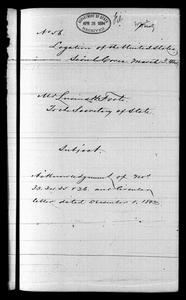 DEPARTMENT OF STATE
APR 28 1884
RECEIVED
No 56
Legation of the United States
Seoul Corea March
Mr Lucius H. Foote
To the Secretary of State.
Subject:
Acknowledgment of Nos
33, 34, 35 & 36. and Circular
letter dated December 1, 1883